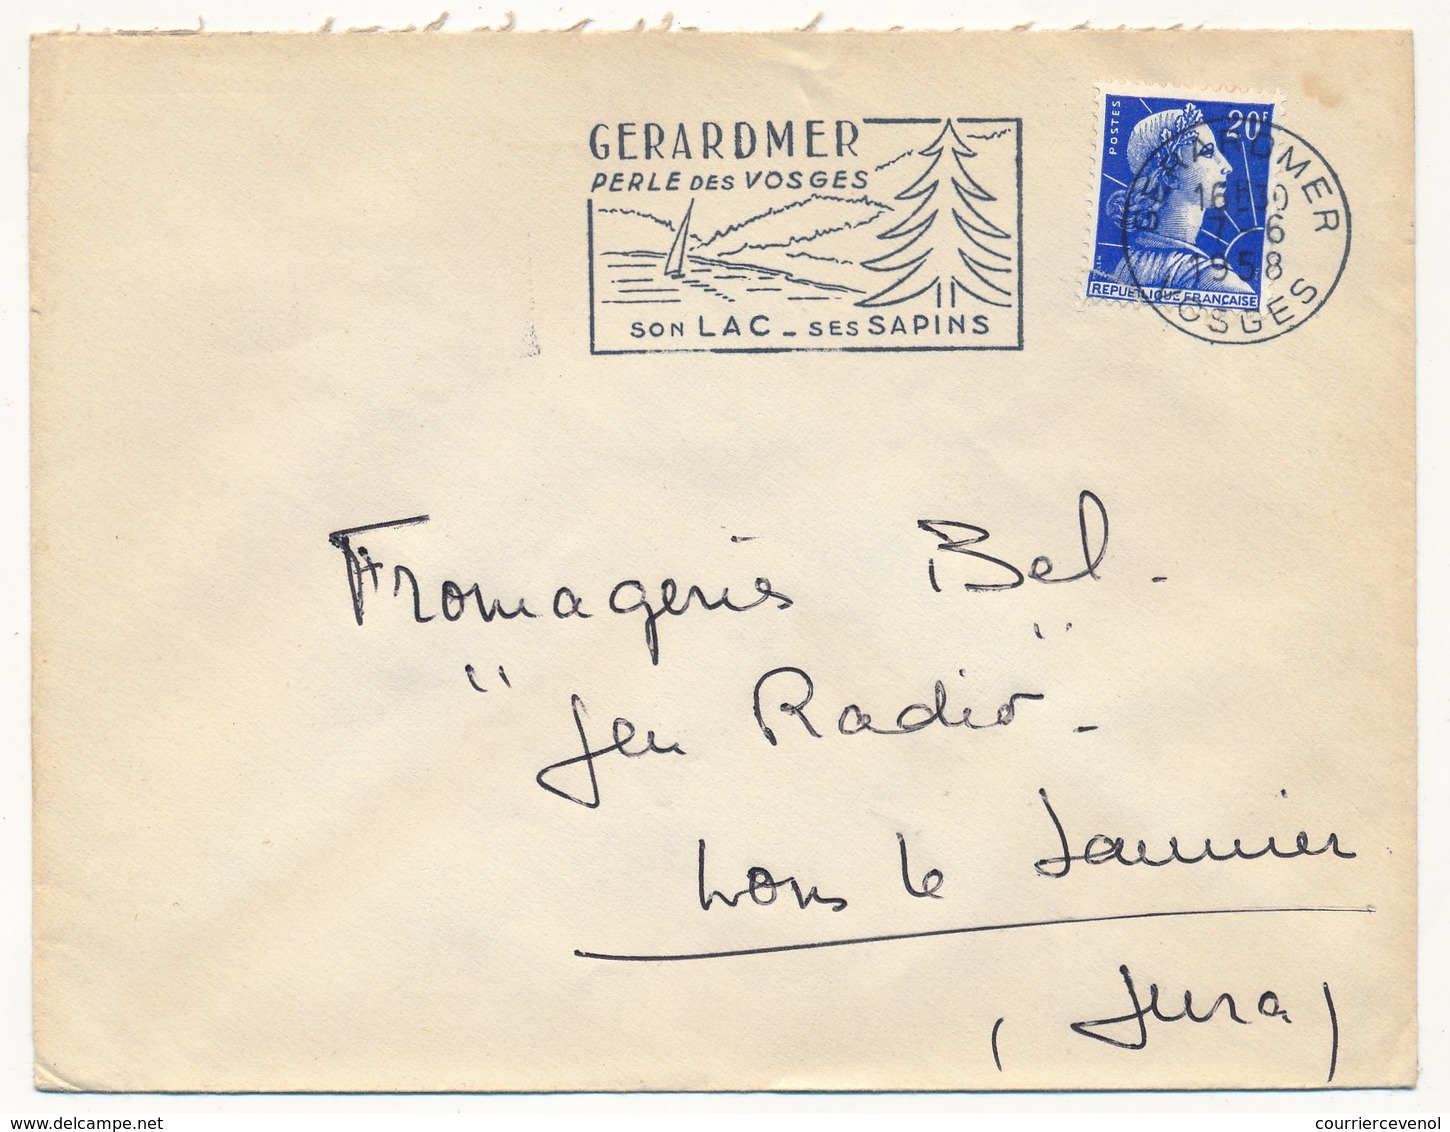 GERARDMER
PERLE DES VOSGES
SON LAC - SES SAPINS
POSTES
20F
REPUBLIQUE FRANÇAISE
GERARDMER
16H30
7-6
1958
VOSGES
Fromageries Bel.
"Jeu Radio"-
Lons le Saunier
(Jura)
delcampe.net
courriercevenol